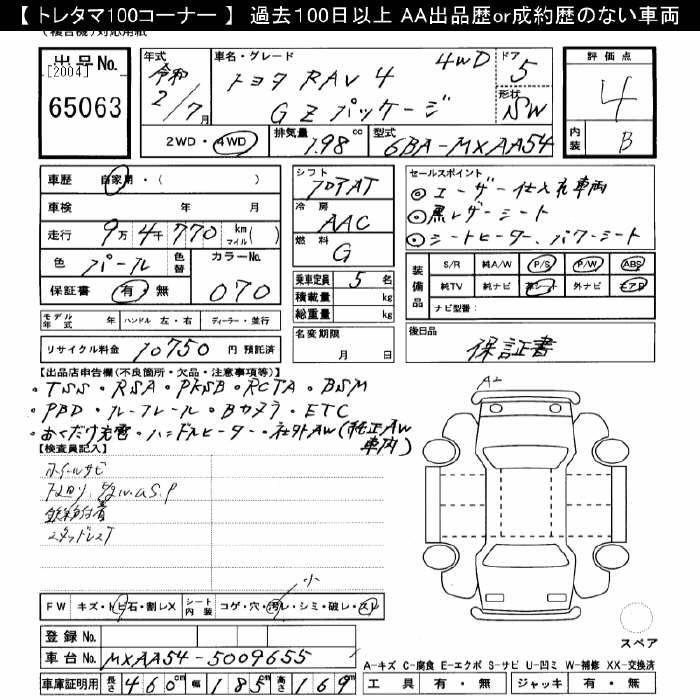 【 トレタマ100コーナー 】 過去100日以上 AA出品歴or成約歴のない車両
(複合機)対応用紙
出品No.
[2004]
65063
年式
令和
2/7月
車名・グレード
トヨタ RAV4 4WD
GZパッケージ
ドア
5
形状
SW
評価点
4
内装
B
2WD・4WD
排気量
1.98 cc
型式
6BA-MXAA54
車歴 自家用・( )
車検 年 月
走行 9万4千770 km マイル( )
色 パール 色替 カラーNo. 070
保証書 有・無
モデル年式 年 ハンドル 左・右 ディーラー・並行
リサイクル料金 10750 円 預託済
シフト
フロアAT
冷房
AAC
燃料
G
乗車定員 5 名
積載量 kg
総重量 kg
名変期限
月 日
セールスポイント
◎ユーザー仕入れ車両
◎黒レザーシート
◎シートヒーター、パワーシート
装備品
S/R 純A/W P/S P/W ABS
純TV 純ナビ 革シート 外ナビ エアB
ナビ型番:
後日品
保証書
【出品店申告欄(不良箇所・欠品・注意事項等)】
・TSS・RSA・PKSB・RCTA・BSM
・PBD・ルーフレール・Bカメラ・ETC
・おくだけ充電・ハンドルヒーター・社外AW(純正AW車内)
【検査員記入】
ホイールサビ
下廻り
スタッドレスT
FW キズ・トビ石・割レX シート内装 コゲ・穴・汚レ・シミ・破レ・スレ
小
登録No.
車台No. MXAA54-5009655
車庫証明用 長さ 460cm 幅 185cm 高さ 169m
A2
スペア
A-キズ C-腐食 E-エクボ S-サビ U-凹ミ W-補修 XX-交換済
工具 有・無 ジャッキ 有・無